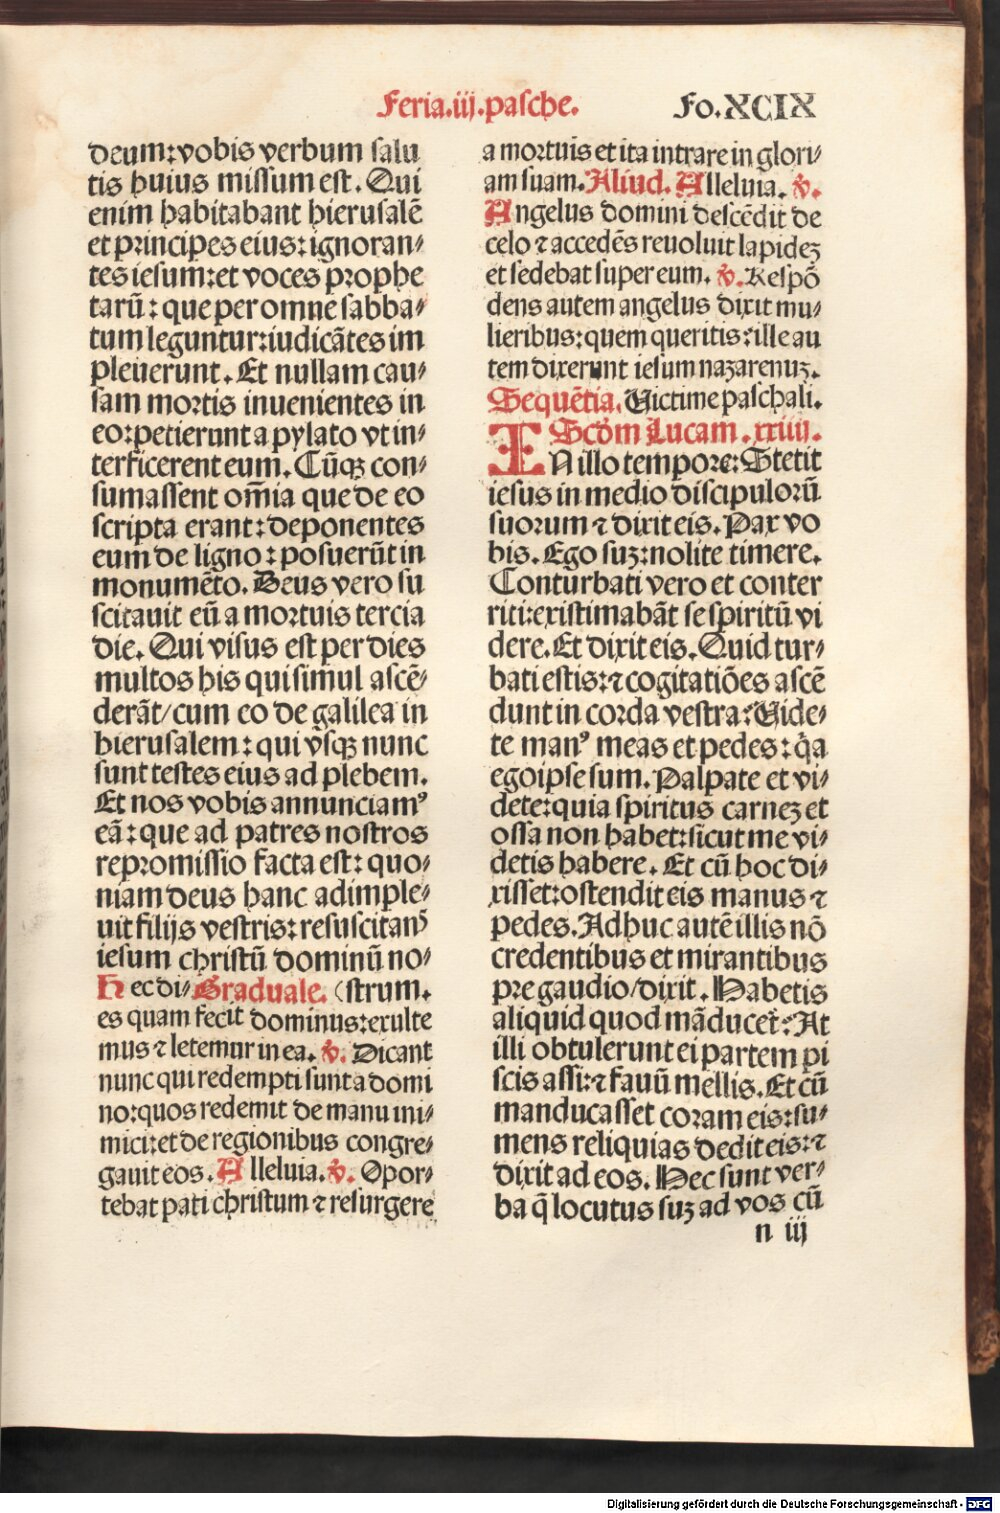 Feria.iij.pasche. Fo.XCIX
deum:vobis verbum salu
tis huius missum est. Qui
enim habitabant hierusalẽ
et principes eius:ignoran⸗
tes iesum:et voces prophe
tarũ: que per omne sabba⸗
tum leguntur:iudicãtes im
pleuerunt. Et nullam cau⸗
sam mortis inuenientes in
eo:petierunt a pylato vt in⸗
terficerent eum. Cũqꝫ con⸗
sumassent om̃ia que de eo
scripta erant:deponentes
eum de ligno: posuerũt in
monumẽto. Deus vero su
scitauit eũ a mortuis tercia
die. Qui visus est per dies
multos his qui simul ascẽ⸗
derãt/cum eo de galilea in
hierusalem: qui vsqꝫ nunc
sunt testes eius ad plebem.
Et nos vobis annunciamꝰ
eã: que ad patres nostros
repromissio facta est: quo⸗
niam deus hanc adimple⸗
uit filijs vestris: resuscitanˢ
iesum christũ dominũ no⸗
Hec di⸗ Graduale. (strum.
es quam fecit dominus:exulte
mus ⁊ letemur in ea. ℣. Dicant
nunc qui redempti sunt a domi
no:quos redemit de manu ini⸗
mici:et de regionibus congre⸗
gauit eos. Alleluia. ℣. Opor⸗
tebat pati christum ⁊ resurgere
a mortuis et ita intrare in glori⸗
am suam. Aliud. Alleluia. ℣.
Angelus domini descẽdit de
celo ⁊ accedẽs reuoluit lapideꝫ
et sedebat super eum. ℣. Respõ
dens autem angelus dixit mu⸗
lieribus:quem queritis:ille au
tem dixerunt iesum nazarenuꝫ.
Sequẽtia. Victime paschali.
Scðm Lucam. xxiiij.
IN illo tempore: Stetit
iesus in medio discipulorũ
suorum ⁊ dixit eis. Pax vo
bis. Ego suꝫ:nolite timere.
Conturbati vero et conter
riti:existimabãt se spiritũ vi
dere. Et dixit eis. Quid tur⸗
bati estis:⁊ cogitatiões ascẽ
dunt in corda vestra: Vide⸗
te manꝰ meas et pedes: q̃a
ego ipse sum. Palpate et vi⸗
dete:quia spiritus carneꝫ et
ossa non habet:sicut me vi⸗
detis habere. Et cũ hoc di⸗
xisset:ostendit eis manus ⁊
pedes. Adhuc autẽ illis nõ
credentibus et mirantibus
pre gaudio/dixit. Habetis
aliquid quod mãducet̃: At
illi obtulerunt ei partem pi
scis assi:⁊ fauũ mellis. Et cũ
manducasset coram eis:su⸗
mens reliquias dedit eis:⁊
dixit ad eos. Hec sunt ver⸗
ba q̃ locutus suꝫ ad vos cũ
n iij
Digitalisierung gefördert durch die Deutsche Forschungsgemeinschaft - DFG